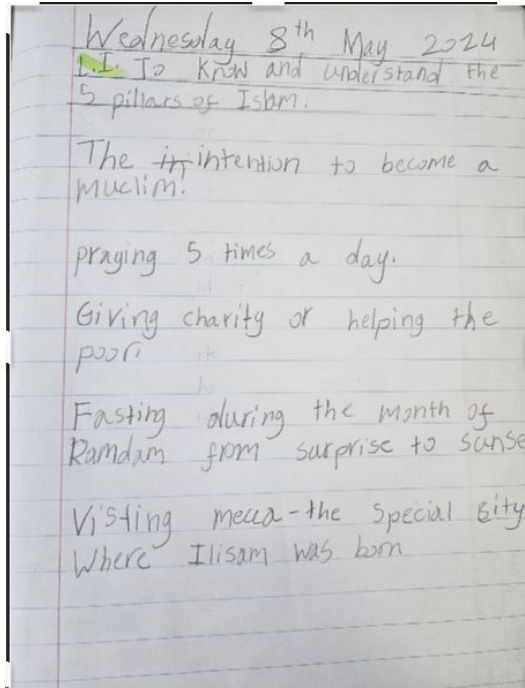 Wednesday 8th May 2024
L.I. To Know and understand the
5 pillars of Islam.
The in intention to become a
muclim.
praying 5 times a day.
Giving charity or helping the
poor.
Fasting during the month of
Ramdam from surprise to sunse
Visting mecca - the special city
Where Ilisam was born